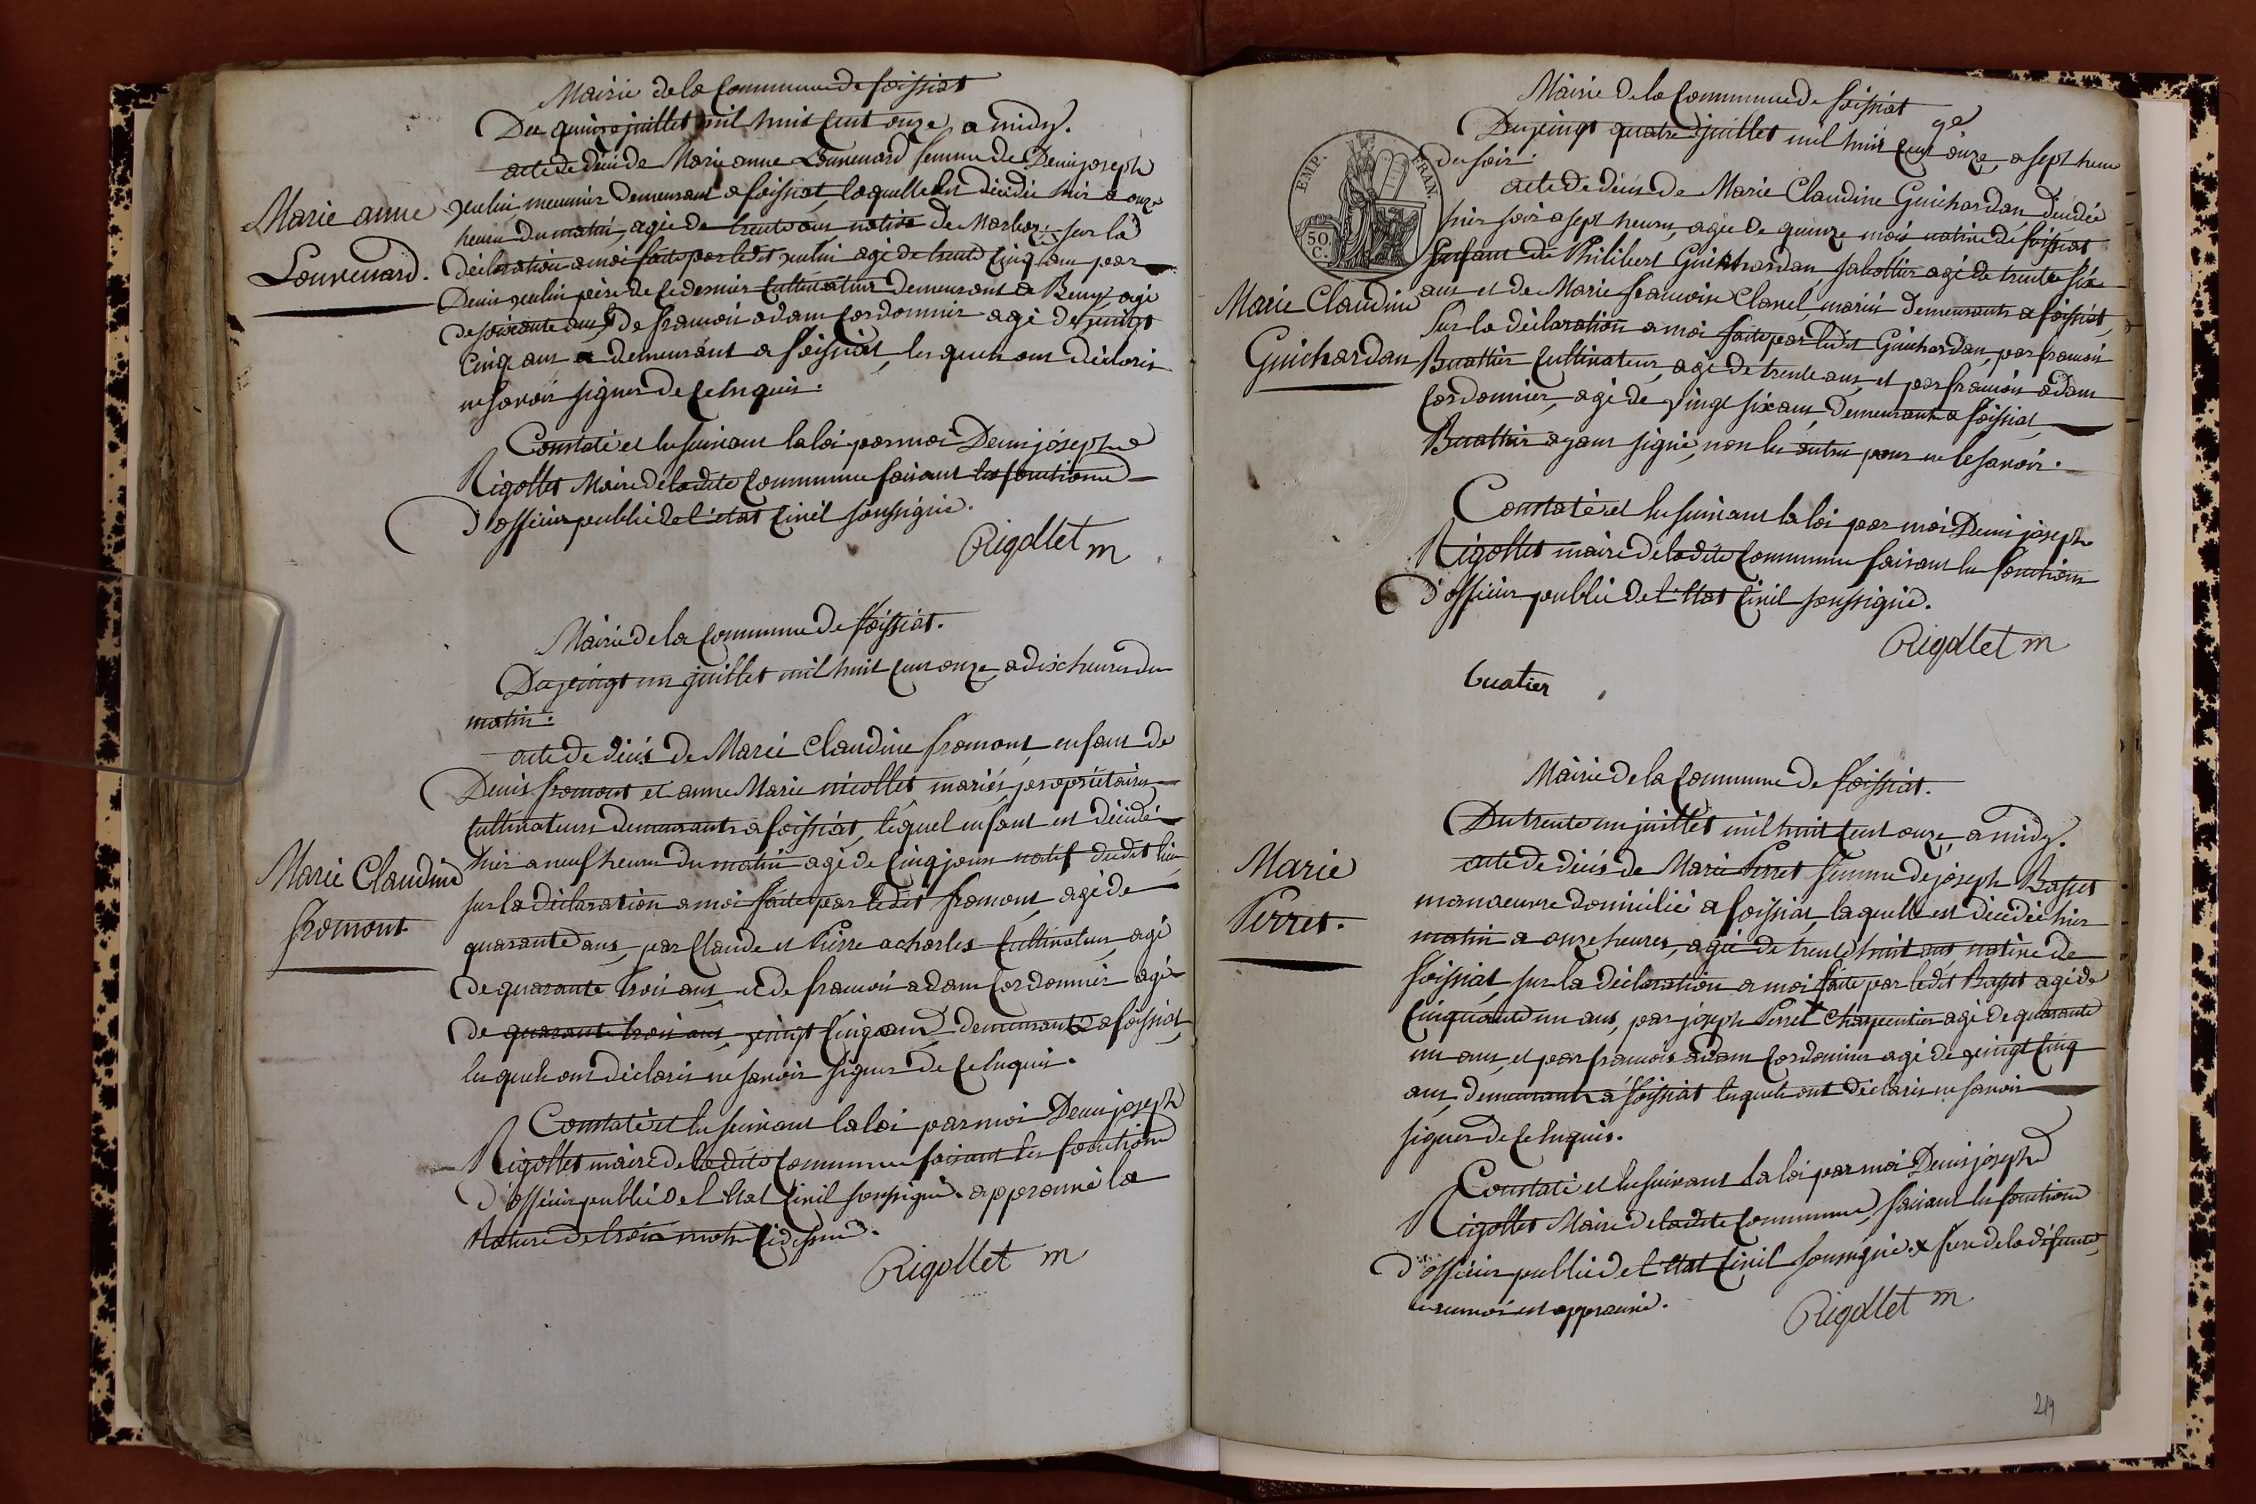 Mairie de la Commune de foissiat
Du quinze juillet mil huit cent onze, a midy.
acte de décès de Marie anne Louvenard femme de Denis joseph
meunier demeurant a foissiat, laquelle est décédée hier a onze
heures du matin, agée de trente ans, native de Marboz, sur la
déclaration a moi faite par ledit agé de trente cinq ans par
Denis père de ce dernier cultivateur demeurant a Beny agé
de soixante ans, & de francois adam cordonnier agé de vingt
cinq ans demeurant a foissiat, lesquels ont déclaré
ne savoir signer de ce enquis.
Marie anne
Louvenard.
Constaté et lu suivant la loi par moi Denis joseph
Rigollet Maire de la dite Commune faisant les fonctions
d'officier public de l'état Civil soussigné.
Rigollet m
Mairie de la Commune de foissiat.
Du vingt un juillet mil huit cent onze, a dix heures du
matin.
acte de décès de Marie Claudine fromont, enfant de
Denis fromont et anne Marie nicollet mariés, propriétaires
cultivateurs demeurants a foissiat, lequel enfant est décédé
hier a neuf heures du matin agé de cinq jours natif dudit lieu,
sur la déclaration a moi faite par ledit fromont, agé de
quarante ans, par Claude et Pierre acharles cultivateur, agé
de quarante trois ans, et de francois adam cordonnier agé
de quarante trois ans, vingt cinq ans demeurants a foissiat,
lesquels ont déclaré ne savoir signer de ce enquis.
Marie Claudine
fromont
Constaté et lu suivant la loi par moi Denis joseph
Rigollet maire de la dite Commune faisant les fonctions
d'officier public de l'Etat Civil soussigné. approuvé la
Rature de trois mots ci dessus.
Rigollet m
Mairie de la Commune de foissiat
Du vingt quatre juillet mil huit cent onze, a sept heures
du soir.
EMP. FRAN.
50
C.
acte de décès de Marie Claudine Guichardan, décédée
hier soir a sept heures, agée de quinze mois, native de foissiat
Enfant de Philibert Guichardan sabottier agé de trente six
ans et de Marie francoise Clanel mariés demeurants a foissiat,
Sur la déclaration a moi faite par ledit Guichardan, par francois
Buattier cultivateur, agé de trente ans, et par francois adam
cordonnier, agé de vingt six ans, demeurants a foissiat,
Buattier ayant signé, non les autres pour ne le savoir.
Marie Claudine
Guichardan
Constaté et lu suivant la loi par moi Denis joseph
Rigollet maire de la dite Commune faisant les fonctions
d'officier public de l'Etat Civil soussigné.
Rigollet m
buatier
Mairie de la Commune de foissiat.
Du trente un juillet mil huit cent onze, a midy.
acte de décès de Marie Perret femme de joseph Basset
manoeuvre domicilié a foissiat, laquelle est décédée hier
matin a onze heures, agée de trente huit ans, native de
foissiat, sur la déclaration a moi faite par ledit Basset agé de
cinquante un ans, par joseph Perret x charpentier agé de quarante
un ans, et par francois adam cordonnier agé de vingt cinq
ans, demeurants a foissiat lesquels ont déclaré ne savoir
signer de ce enquis.
Marie
Perret.
Constaté et lu suivant la loi par moi Denis joseph
Rigollet Maire de la dite Commune, faisant les fonctions
d'officier public de l'Etat Civil soussigné. x frere de la défunte,
le renvoi est approuvé.
Rigollet m
219